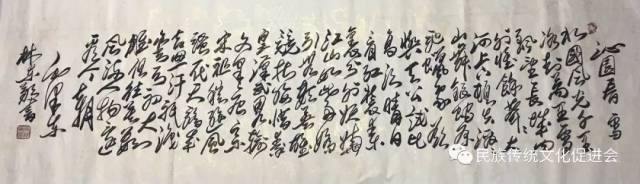 沁园春 雪
北国风光千里
冰封万里雪
飘望长城内
外惟余莽莽大
河上下顿失滔滔
山舞银蛇原
驰蜡象欲
与天公试比
高须晴日
看红装素
裹分外妖娆
江山如此多娇
引无数英雄
竞折腰惜秦
皇汉武略输
文采唐宗
宋祖稍逊风
骚一代天骄成
吉思汗只识
弯弓射大
雕俱往矣数
风流人物还
看今朝
毛泽东
民族传统文化促进会